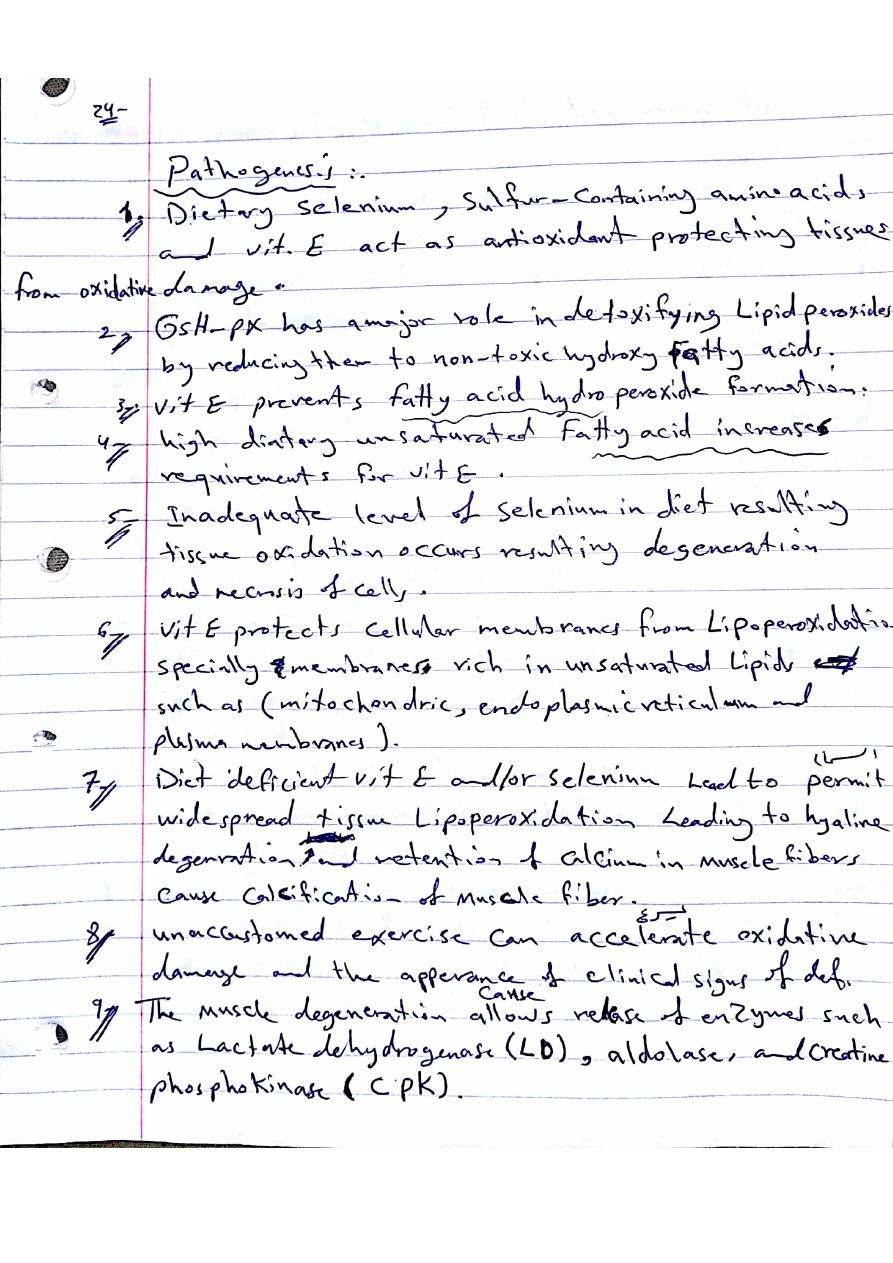 24-
Pathogenesis :.
1, Dietary selenium, Sulfur-Containing amino acids
and vit. E act as antioxidant protecting tissues
from oxidative damage.
2, GSH-px has a major role in detoxifying Lipid peroxides
by reducing them to non-toxic hydroxy Fatty acids.
3, vit E prevents fatty acid hydroperoxide formation.
4, high diatary unsaturated Fatty acid increases
requirements for vit E.
5- Inadequate level of selenium in diet resulting
tissue oxidation occurs resulting degeneration
and necrosis of cells.
6, vit E protects cellular membranes from Lipoperoxidatio
specially membranes rich in unsaturated Lipids
such as (mitochondric, endoplasmic reticulum and
plasma membranes).
7, Diet deficient vit E and/or selenium Lead to permit
widespread tissue Lipoperoxidation Leading to hyaline
degenration and retention of calcium in muscle fibers
cause calcification of muscle fiber.
يسرع
8, unaccustomed exercise can accelerate oxidative
damage and the apperance of clinical signs of def.
cause
9, The muscle degeneration allows release of enzymes such
as Lactate dehydrogenase (LD), aldolase, and creatine
phosphokinase (CPK).